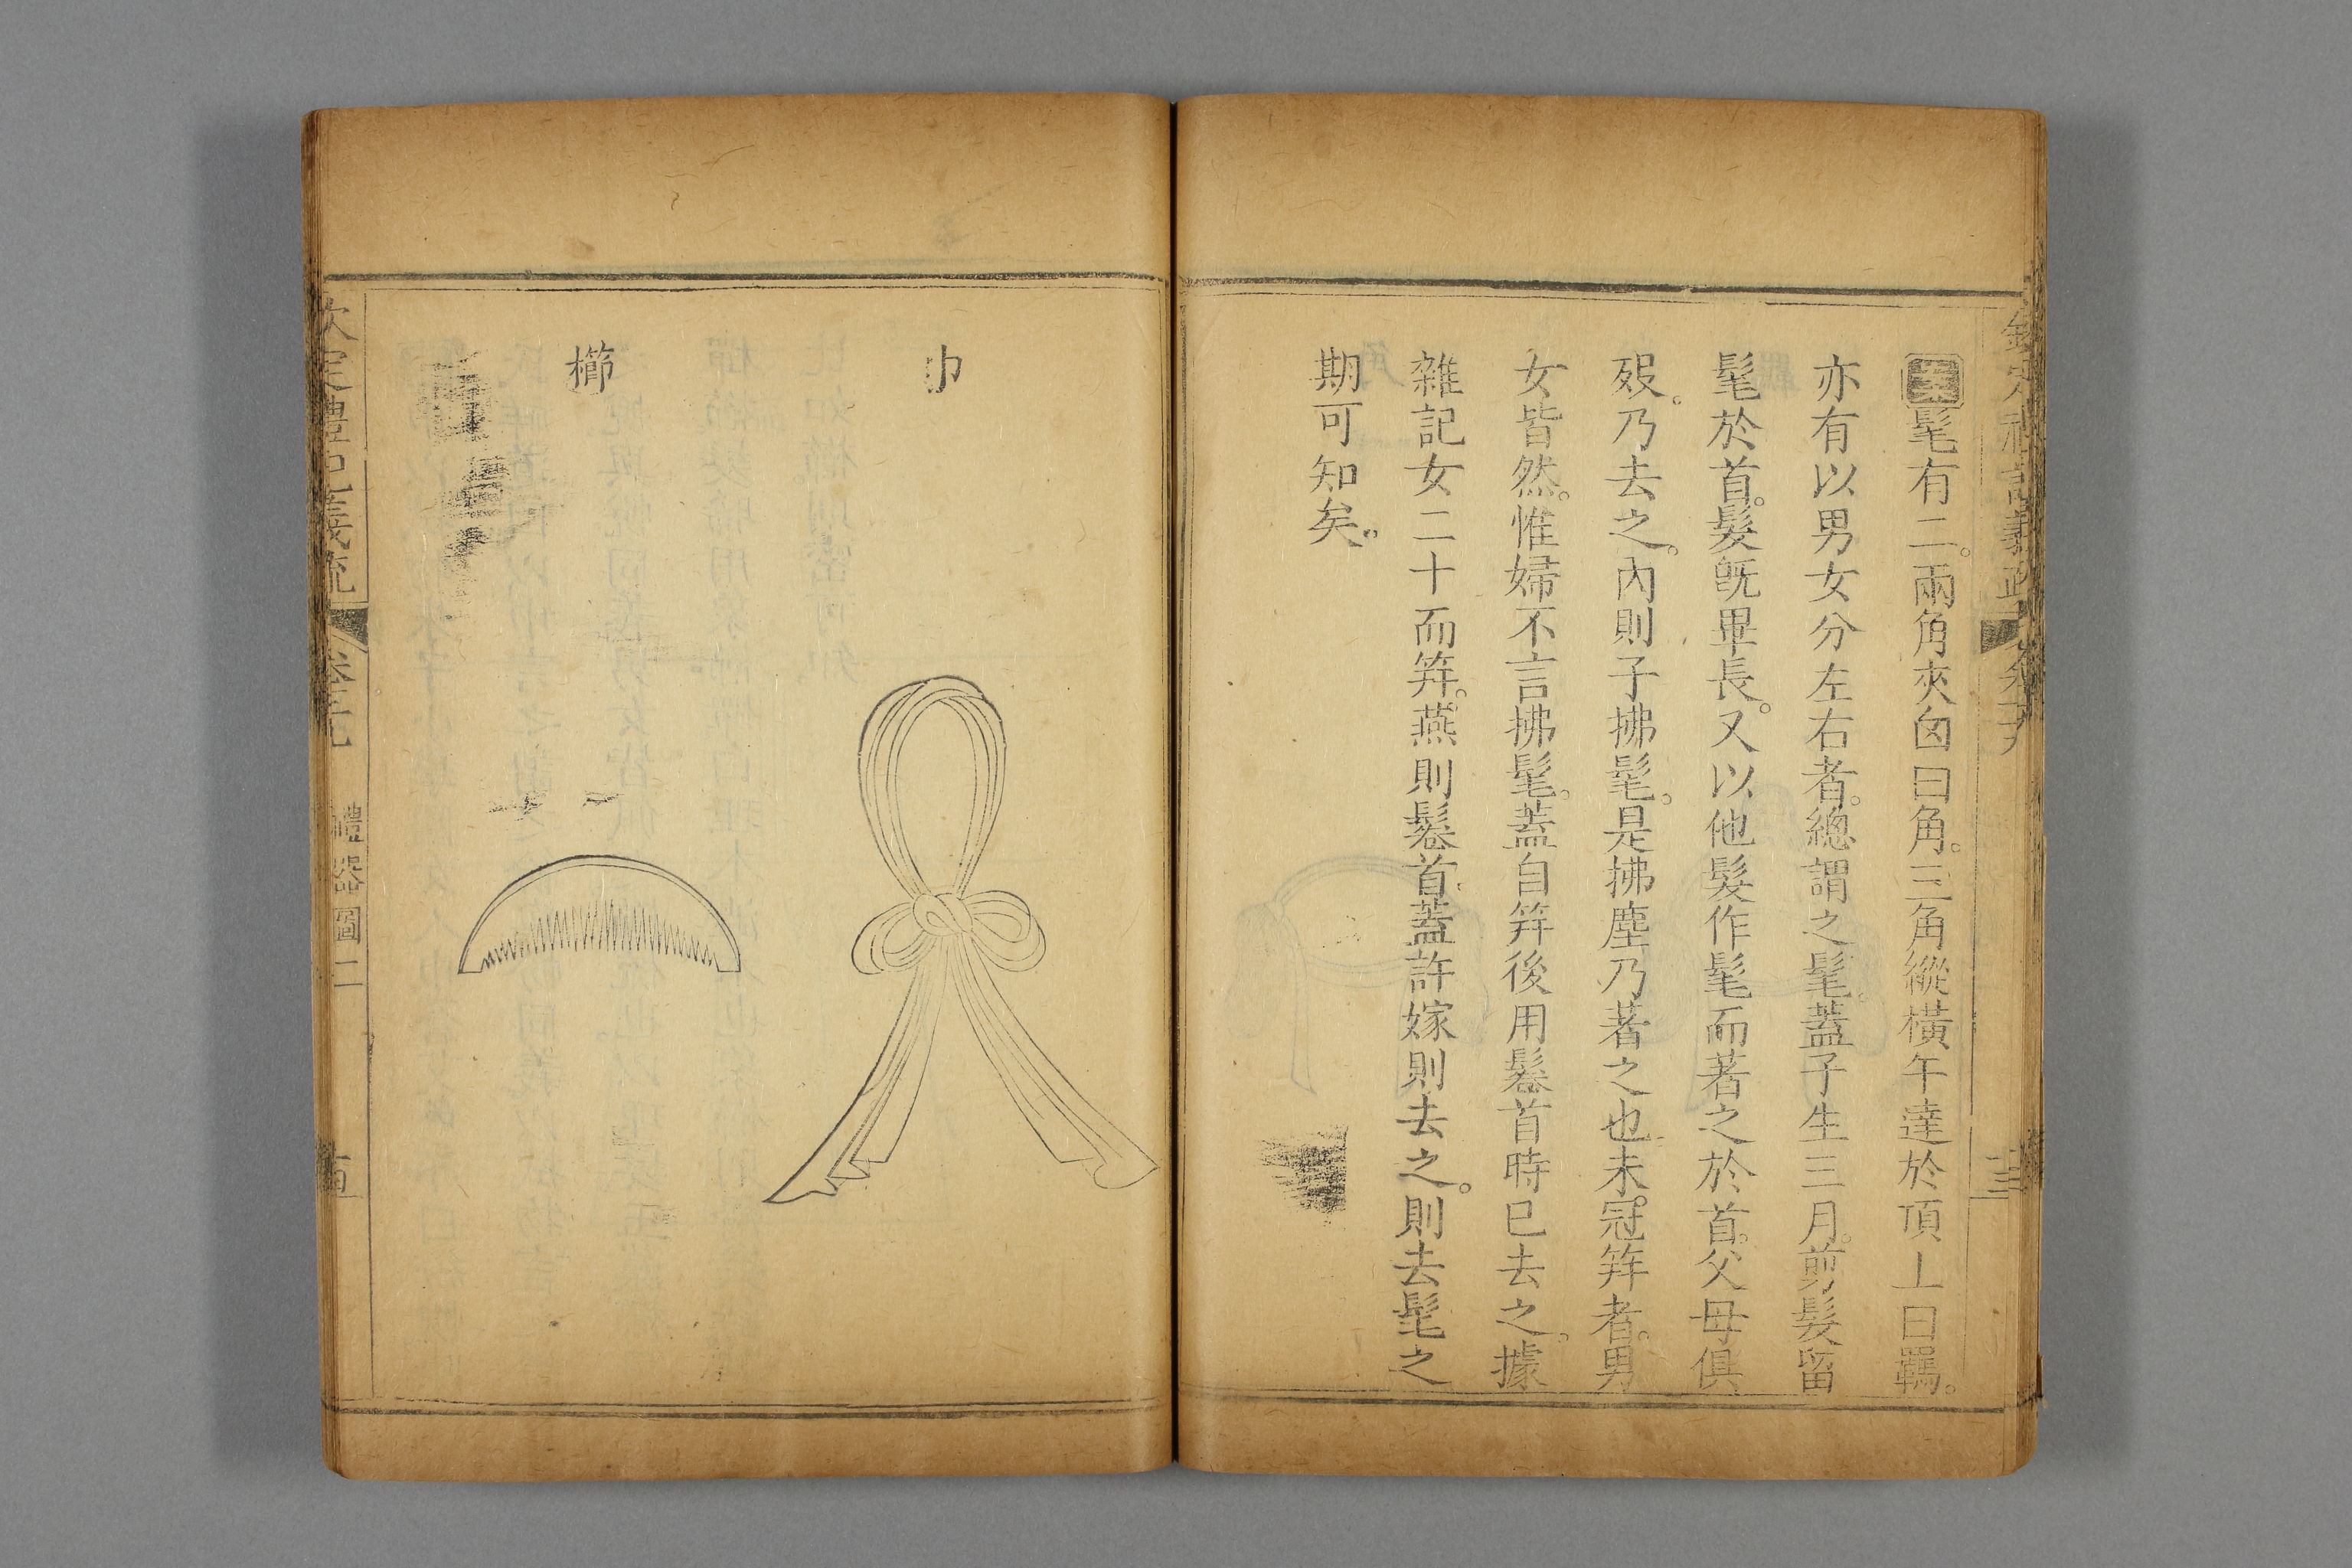 欽定禮記義疏 卷 十三
髦有二。兩角夾囟曰角。三角縱橫午達於頂上曰羈。
亦有以男女分左右者。總謂之髦。蓋子生三月。剪髮留
髦於首。髮既畢長。又以他髮作髦而著之於首。父母俱
歿。乃去之。內則子拂髦。是拂塵乃著之也。未冠笄者。男
女皆然。惟婦不言拂髦。蓋自笄後用鬈首時已去之。據
雜記女二十而笄。燕則鬈首。蓋許嫁則去之。則去髦之
期可知矣。
巾
櫛
欽定禮記義疏 禮器圖二